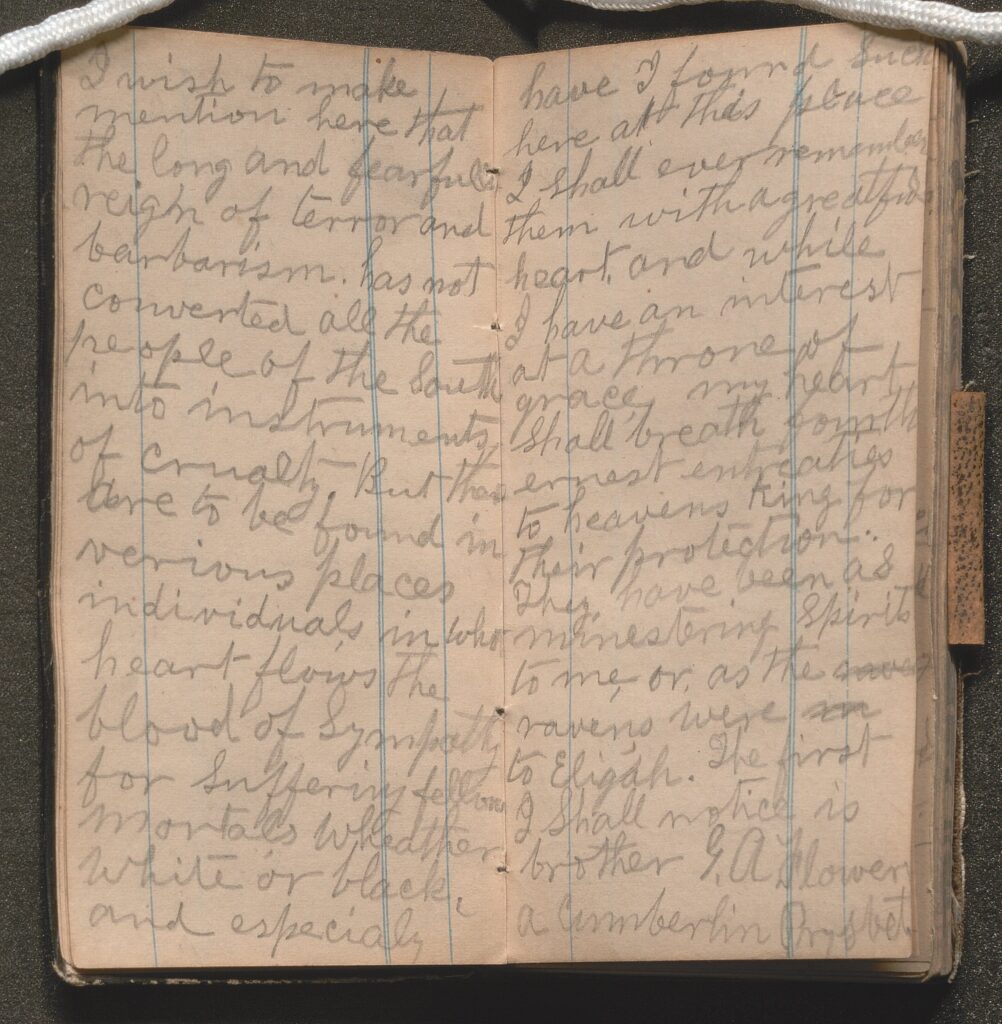 I wish to make
mention here that
the long and fearful
reign of terror and
barbarism. has not
converted all the
people of the South
into instruments
of crualty. But ther
are to be found in
verious places
individuals in who
heart flows the
blood of Sympathy
for Suffering fellow
mortals wheather
white or black,
and especialy
have I found Such
here at this place
I shall ever remember
them with a greatful
heart. and while
I have an interest
at a throne of
grace, my heart
Shall breath fourth
ernest entreaties
to heavens King for
their protection.
They have been as
minestering Spirits
to me, or, as the
ravens were
to Eligah. The first
I Shall notice is
brother G. A. Flower
a Cumberlin Prysbet